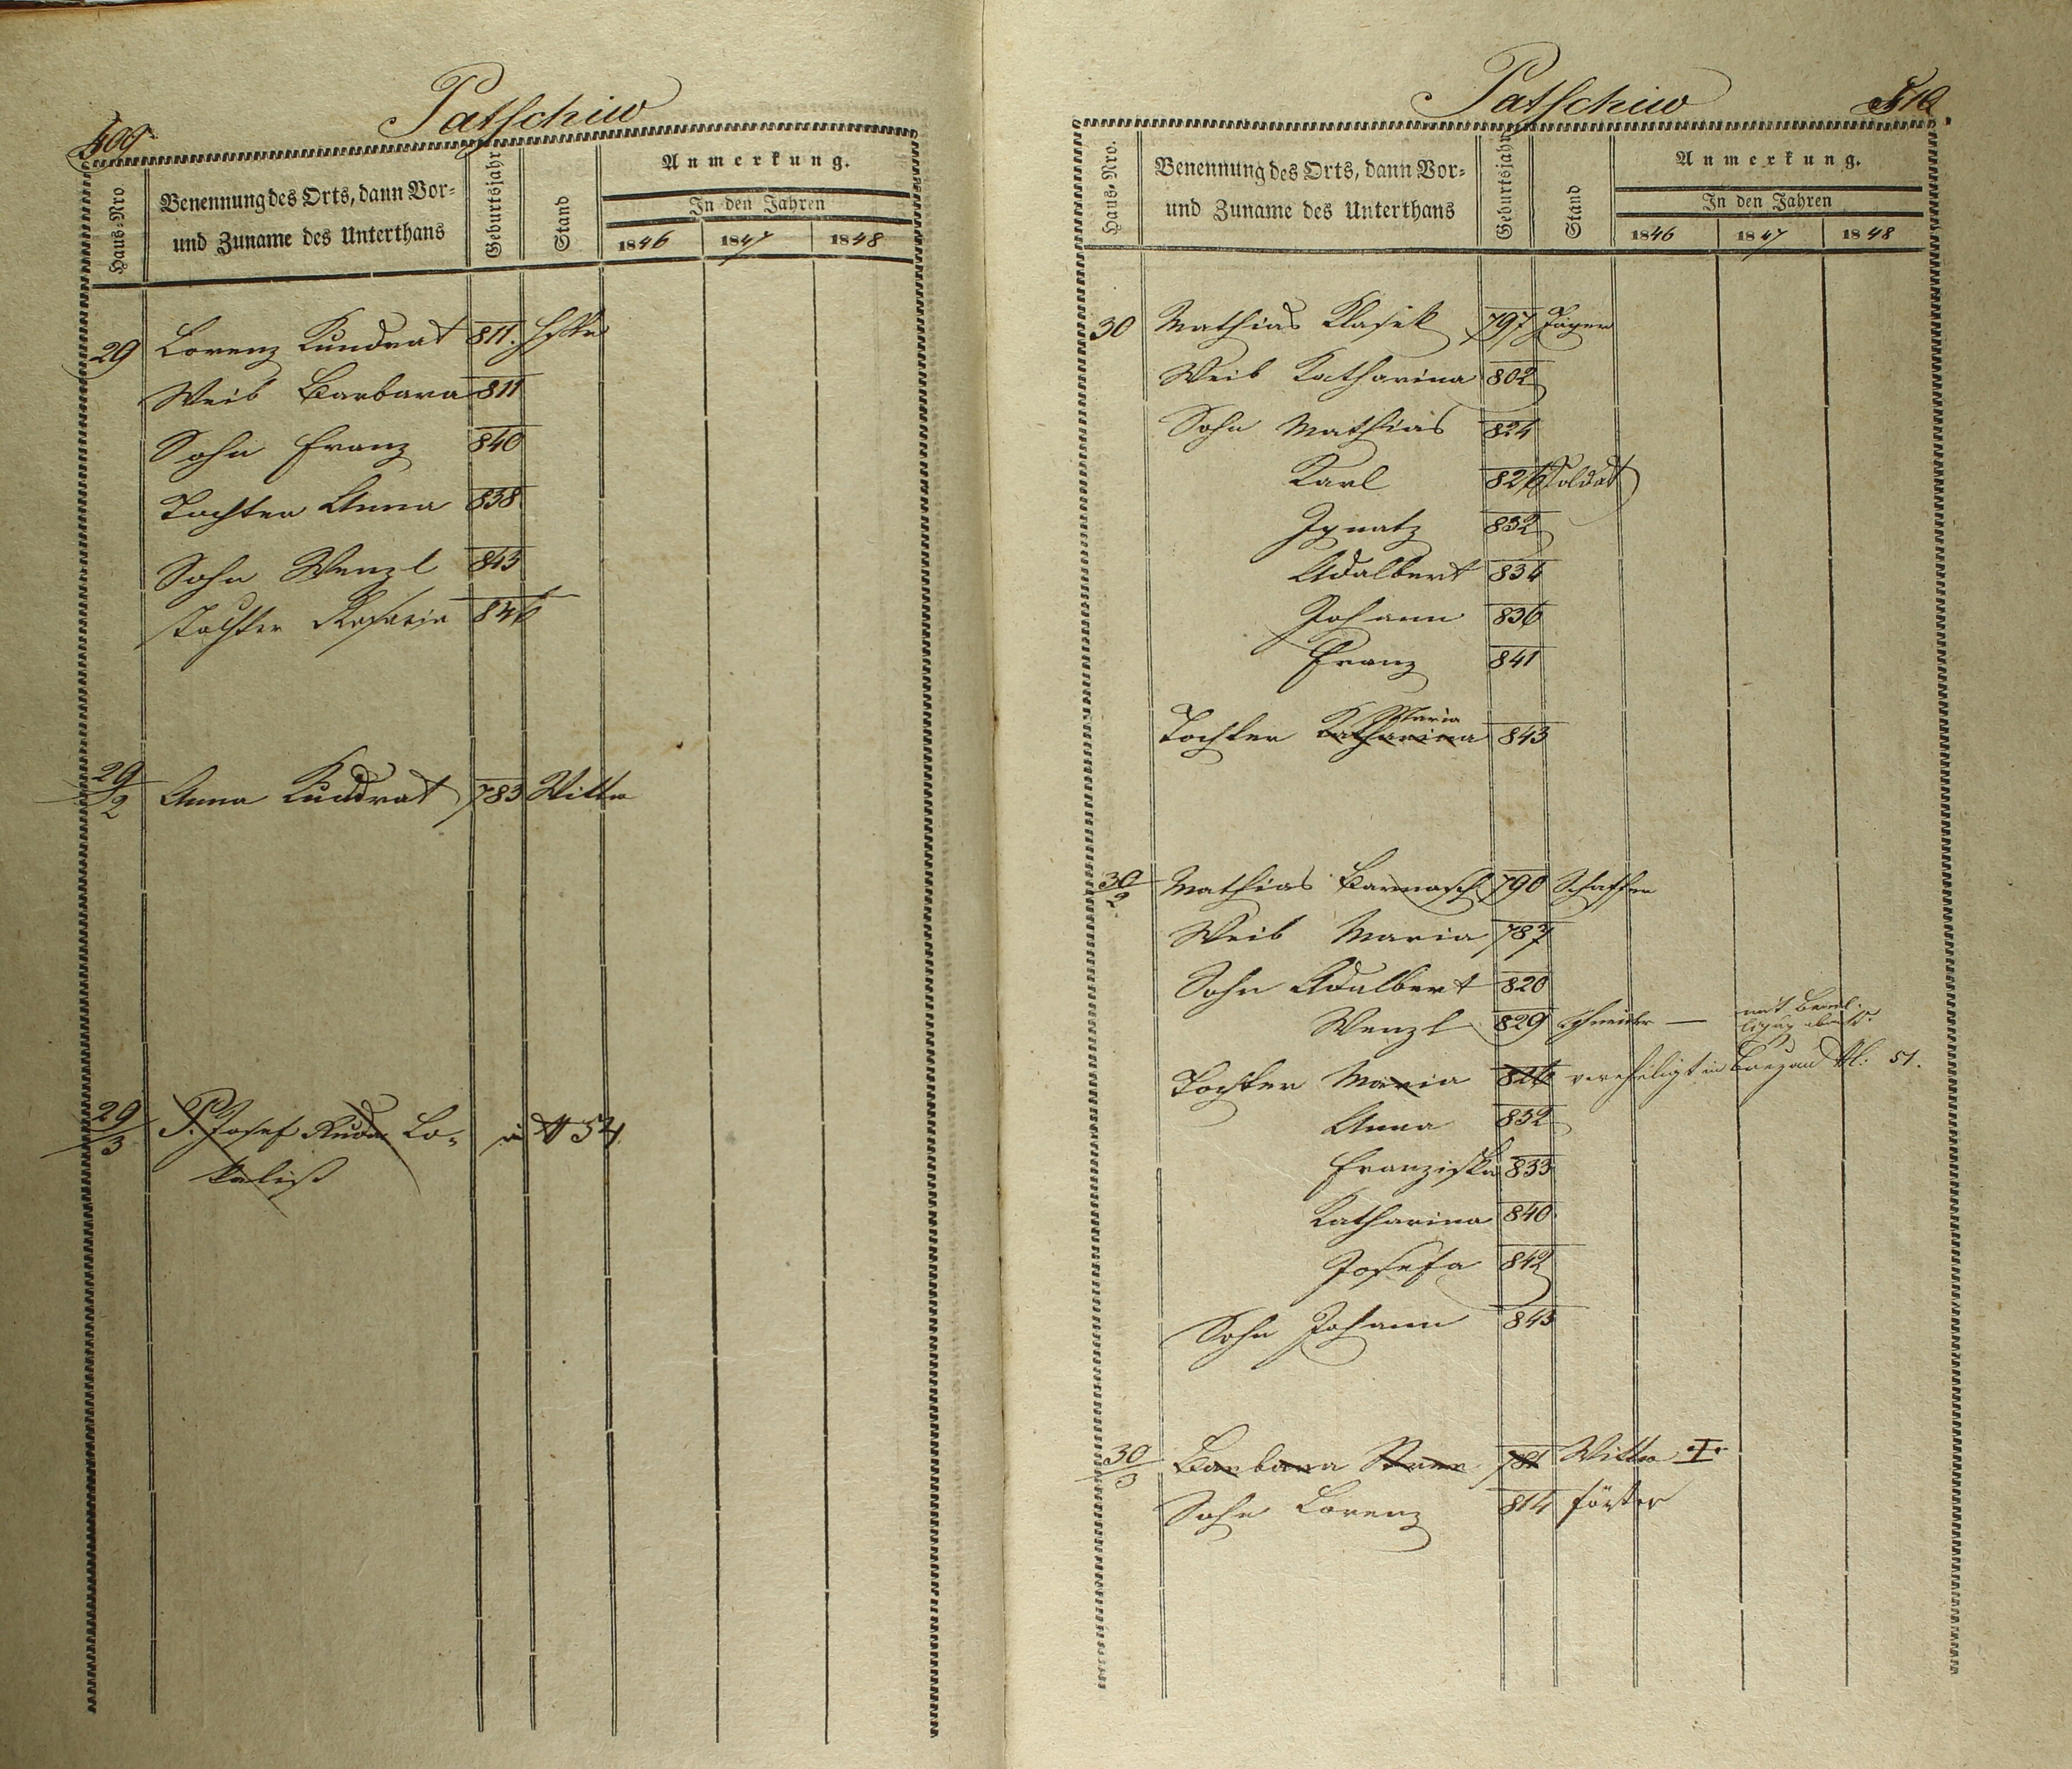 Patschiw
509
Haus-Nro
Benennung des Orts, dann Vor-
und Zuname des Unterthans
Geburtsjahr
Stand
Anmerkung.
In den Jahren
1846 1847 1848
29 Lorenz Kundrat 811.
Weib Barbara 811
Sohn Franz 840
Tochter Anna 838
Sohn Wenzl 843
Tochter Rosalia 846
29/2 Anna Kundrat 783 Wittw
29/3 P. Josef Lo-
kalist
in N 54
Patschiw
510
Haus-Nro.
Benennung des Orts, dann Vor-
und Zuname des Unterthans
Geburtsjahr
Stand
Anmerkung.
In den Jahren
1846 1847 1848
30 Mathias Klasek 797 Jäger
Weib Katharina 802
Sohn Mathias 824
Karl 826 Soldat
Ignatz 832
Adalbert 834
Johann 836
Franz 841
Maria
Tochter Katharina 843
30/2 Mathias Barnasch 790 Schaffer
Weib Maria 787
Sohn Adalbert 820
Wenzl 829 Schneider — mit
Tochter Maria 826 vereheligt in N: 51.
Anna 832
Franziska 833
Katharina 840
Josefa 842
Sohn Johann 843
30/3 Barbara 781 Wittw
Sohn Lorenz 814 Förster